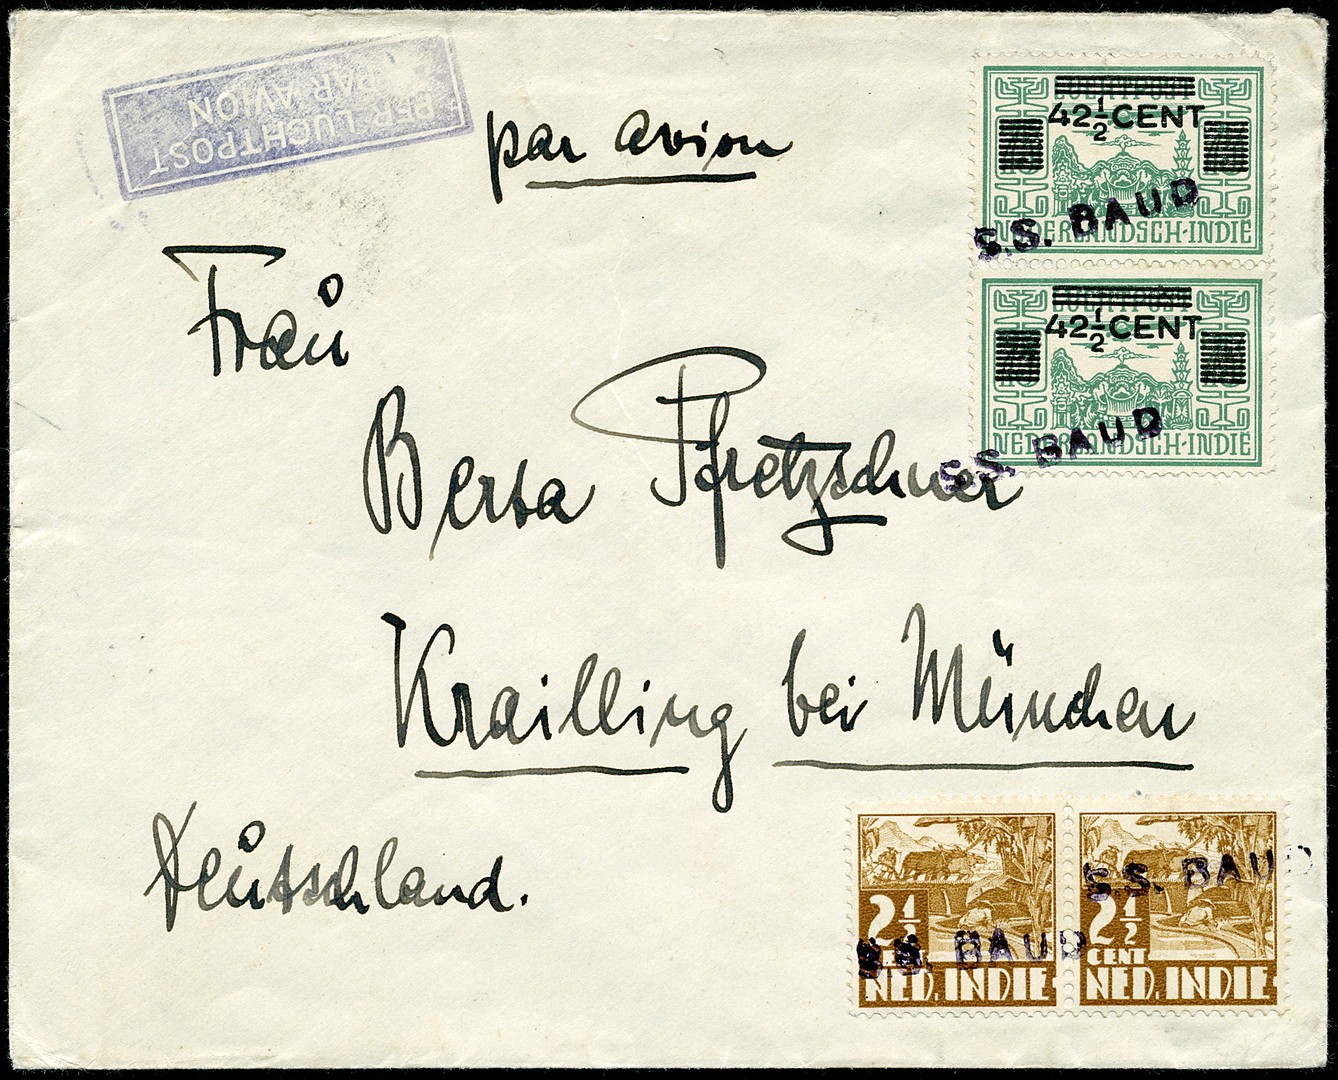 PER LUCHTPOST
PAR AVION
par avion
42 1/2 CENT
S.S. BAUD
NEDERLANDSCH-INDIË
42 1/2 CENT
S.S. BAUD
NEDERLANDSCH-INDIË
Frau
Berta Pfretzschner
Krailling bei München
Deutschland.
2 1/2
CENT
NED. INDIE
S.S. BAUD
2 1/2
CENT
NED. INDIE
S.S. BAUD